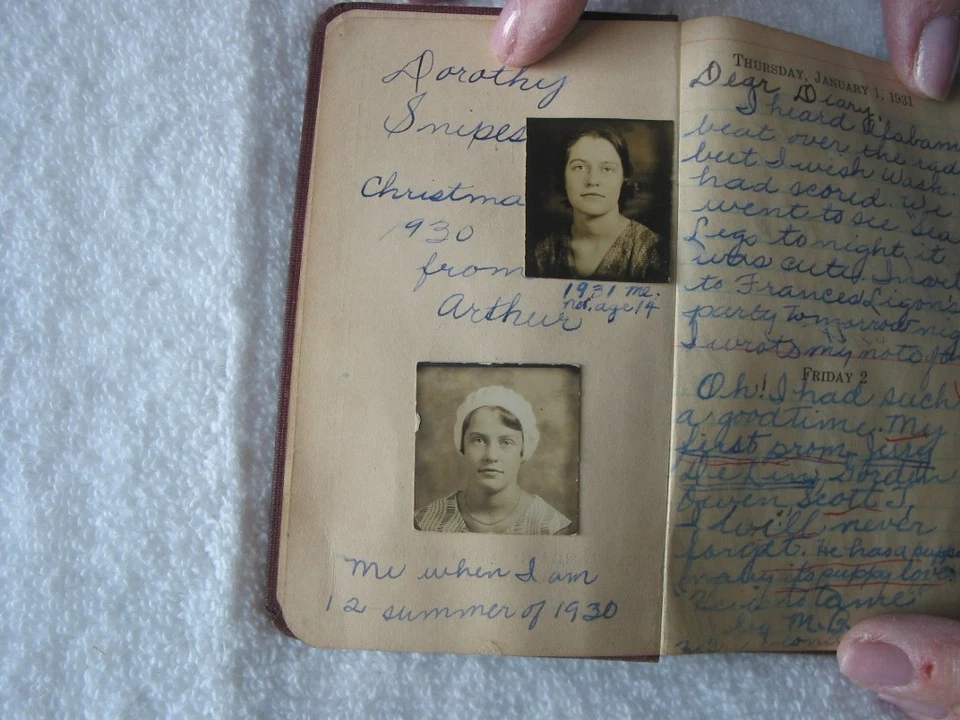 Dorothy
Snipes
Christmas
1930
from
Arthur
1931 me.
Nov. age 14
Me when I am
12 summer of 1930
THURSDAY, JANUARY 1, 1931
Dear Diary,
I heard Alabam
beat over the rad
but I wish Wash.
had scored. We
went to see
Legs tonight it
was cute. Invit
to Frances Ligon's
party tomorrow nig
I wrote my note
FRIDAY 2
Oh! I had such
a good time. My
first prom. Jerry
Gordon
Owen Scott.
I will never
forget. He has a pupp
maby its puppy love